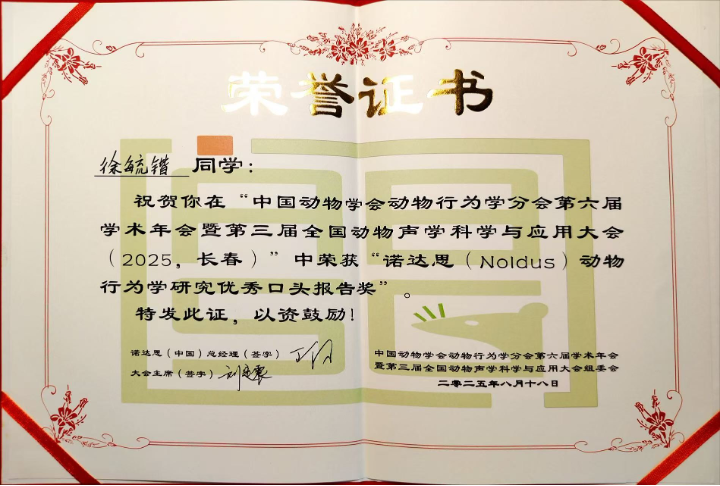 荣誉证书
徐毓锴 同学：
祝贺你在“中国动物学会动物行为学分会第六届
学术年会暨第三届全国动物声学科学与应用大会
（2025，长春）”中荣获“诺达思（Noldus）动物
行为学研究优秀口头报告奖”。
特发此证，以资鼓励！
诺达思（中国）总经理（签字）
大会主席（签字）
中国动物学会动物行为学分会第六届学术年会
暨第三届全国动物声学科学与应用大会组委会
二〇二五年八月十八日